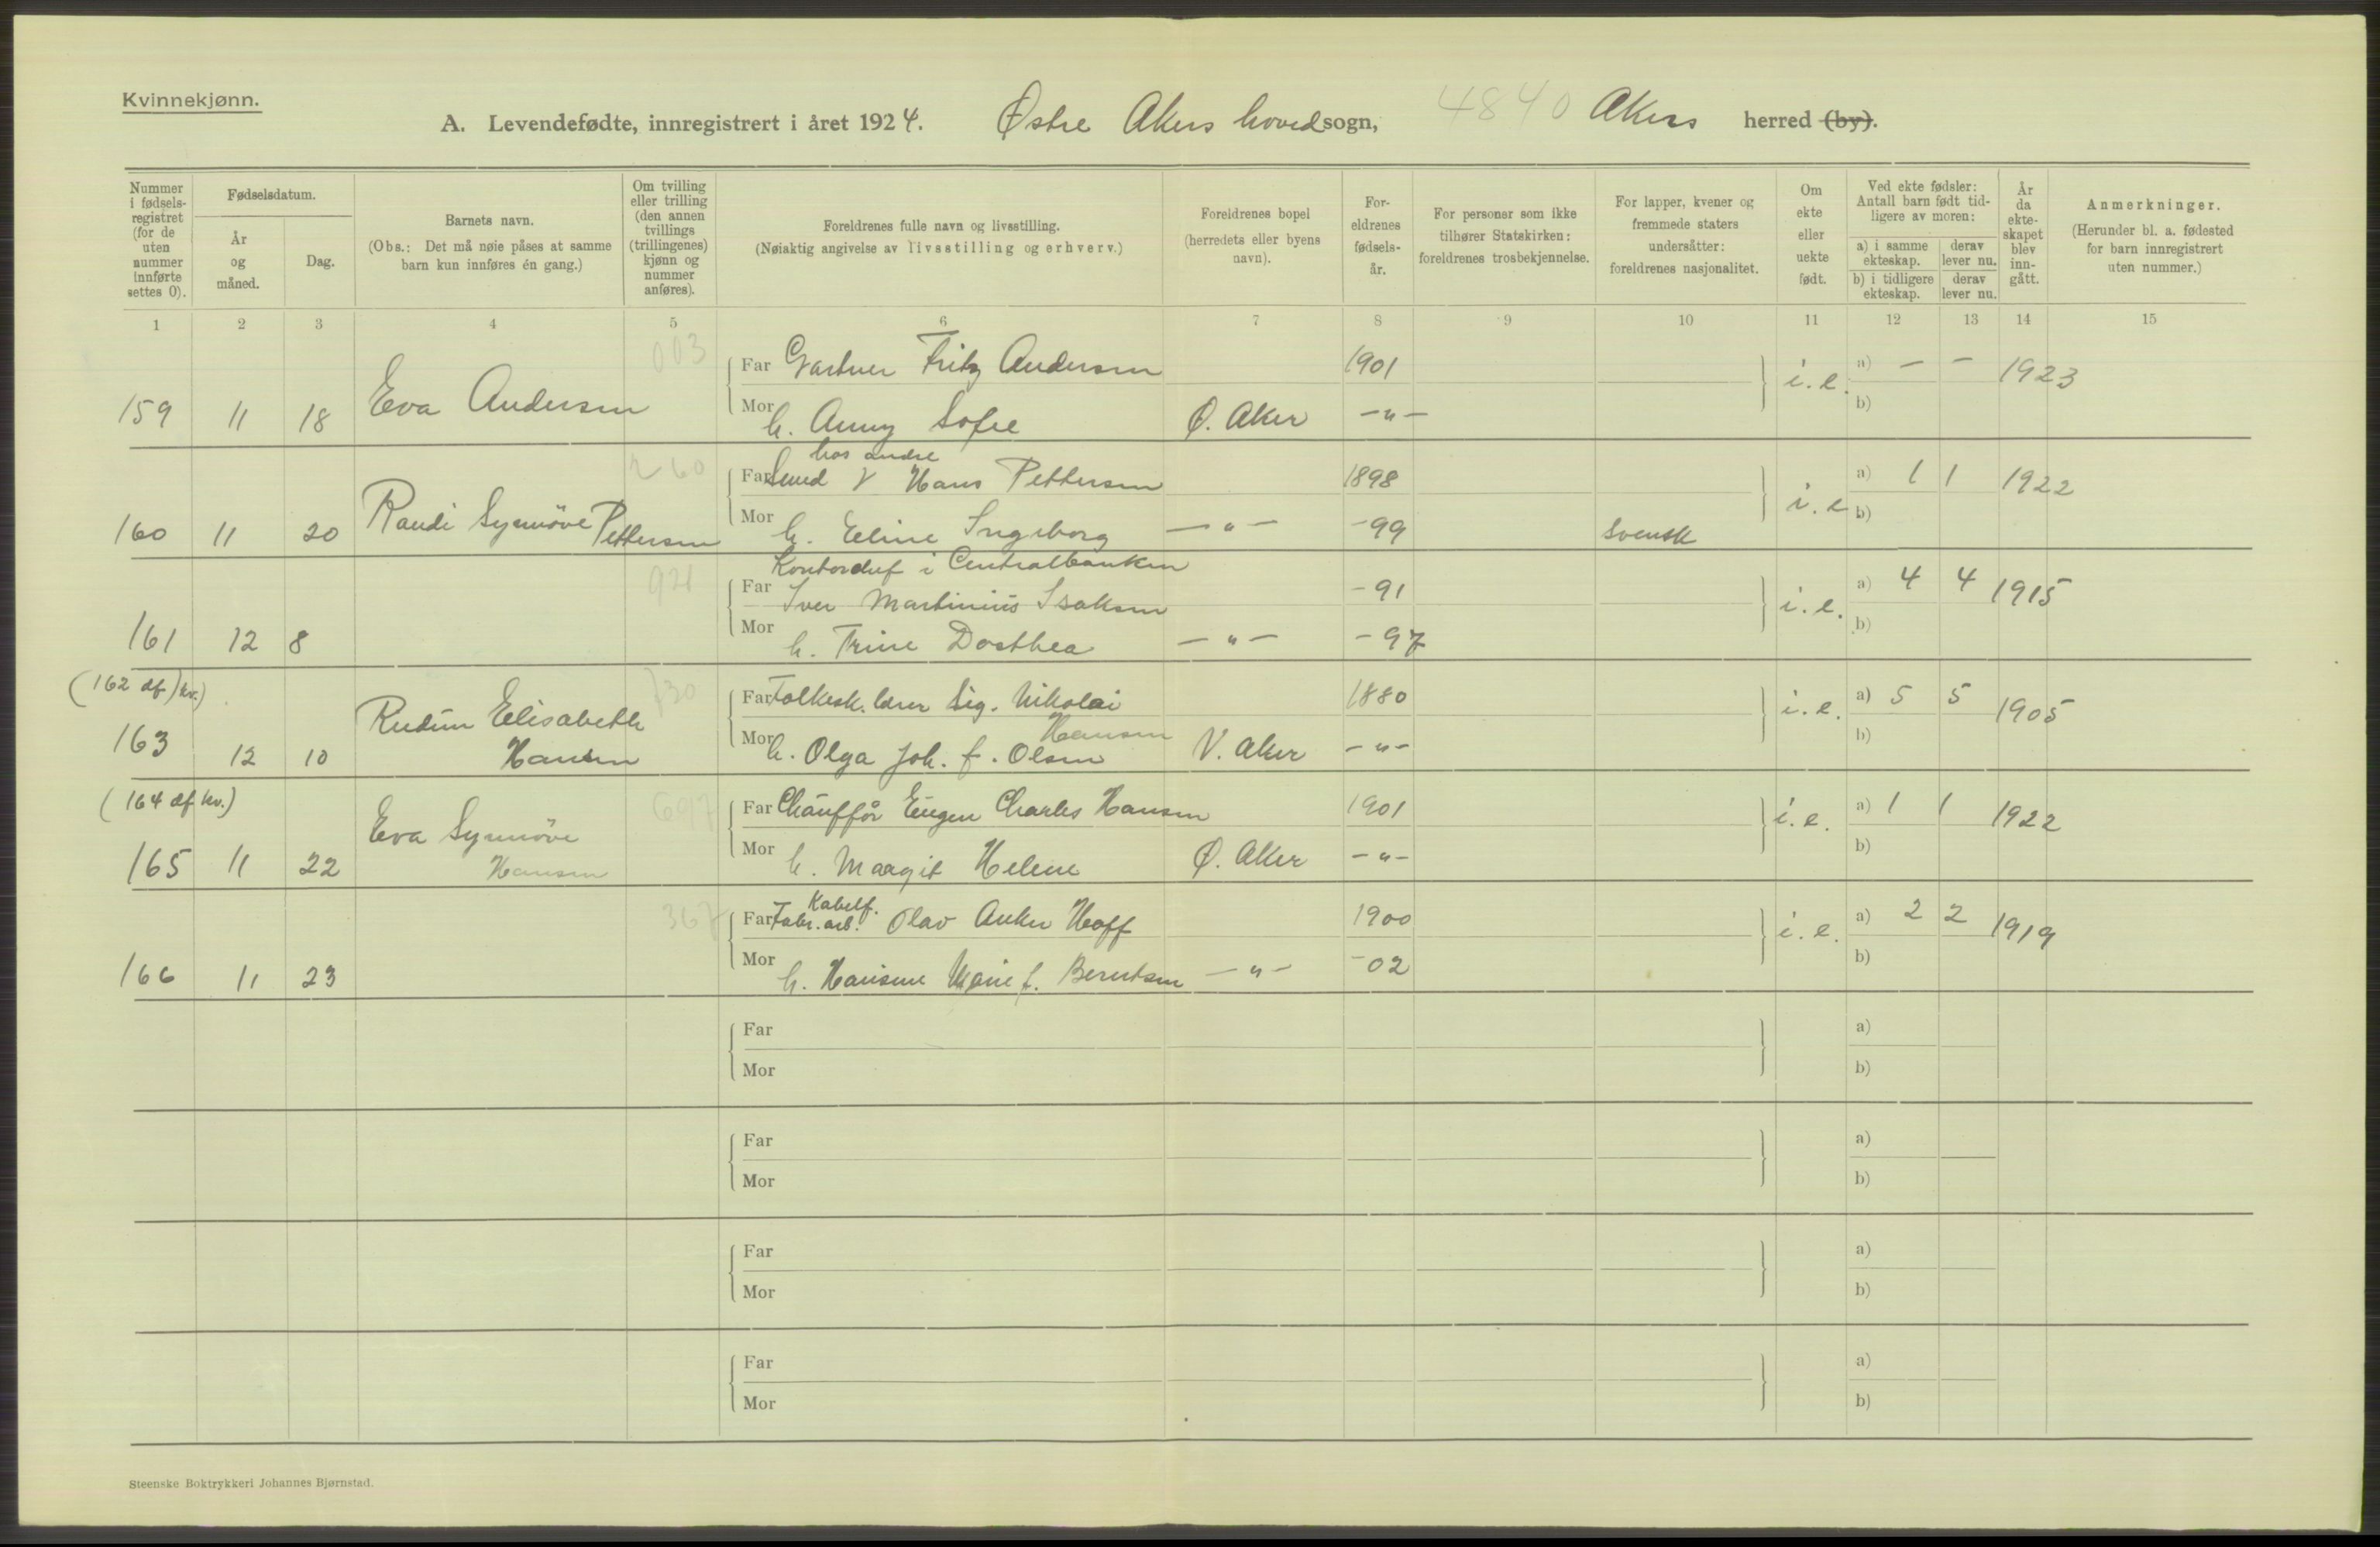 Kvinnekjønn.
A. Levendefødte, innregistrert i året 1924. Østre Akers hovedsogn, 4840 Akers herred (by).
Nummer i fødsels-registret (for de uten nummer innførte settes 0).
Fødselsdatum.
År og måned.
Dag.
Barnets navn.
(Obs.: Det må nøie påses at samme barn kun innføres én gang.)
Om tvilling eller trilling (den annen tvillings (trillingenes) kjønn og nummer anføres).
Foreldrenes fulle navn og livsstilling.
(Nøiaktig angivelse av livsstilling og erhverv.)
Foreldrenes bopel (herredets eller byens navn).
For-eldrenes fødsels-år.
For personer som ikke tilhører Statskirken: foreldrenes trosbekjennelse.
For lapper, kvener og fremmede staters undersåtter: foreldrenes nasjonalitet.
Om ekte eller uekte født.
Ved ekte fødsler: Antall barn født tid-ligere av moren:
a) i samme ekteskap.
derav lever nu.
b) i tidligere ekteskap.
derav lever nu.
År da ekte-skapet blev inn-gått.
Anmerkninger.
(Herunder bl. a. fødested for barn innregistrert uten nummer.)
1 2 3 4 5 6 7 8 9 10 11 12 13 14 15
003
Far Gartner Fritz Andersen 1901 i. e. a) — — 1923
159 11 18 Eva Andersen Mor h. Anny Sofie Ø. Aker —"— b)
hos andre
260
Far Smed V Hans Pettersen 1898 i. e a) 1 1 1922
160 11 20 Randi Synnöve Pettersen Mor h. Eline Ingeborg —"— -99 Svensk b)
Kontorchef i Centralbanken
921
Far Iver Martinius Isaksen -91 i. e. a) 4 4 1915
161 12 8 Mor h. Trine Dorthea —"— -97 b)
(162 df) kv.)
730
Far Folkesk. lærer Sig. Nikolai Hansen 1880 i. e. a) 5 5 1905
163 12 10 Elisabeth Hansen Mor h. Olga Joh. f. Olsen V. Aker —"— b)
(164 df kv.)
697
Far Chauffør Eugen Charles Hansen 1901 i. e. a) 1 1 1922
165 11 22 Eva Synnöve Hansen Mor h. Margit Helene Ø. Aker —"— b)
Kabelf.
367
Far Fabr. arb. Olav Anker Hoff 1900 i. e. a) 2 2 1919
166 11 23 Mor h. Marie f. Berntsen —"— -02 b)
Far a)
Mor b)
Far a)
Mor b)
Far a)
Mor b)
Far a)
Mor b)
Steenske Boktrykkeri Johannes Bjørnstad.